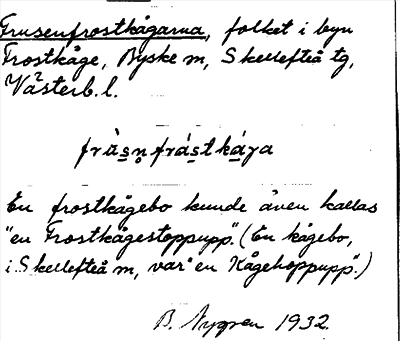 Frusenfrostkågarna, folket i byn
Frostkåge, Byske m, Skellefteå tg,
Västerb. l.
frὰsn̥frástkáγa
En frostkågebo kunde även kallas
"en Frostkågestoppupp". (En kågebo,
i Skellefteå m, var "en Kågehoppupp".)
B. Nygren 1932.